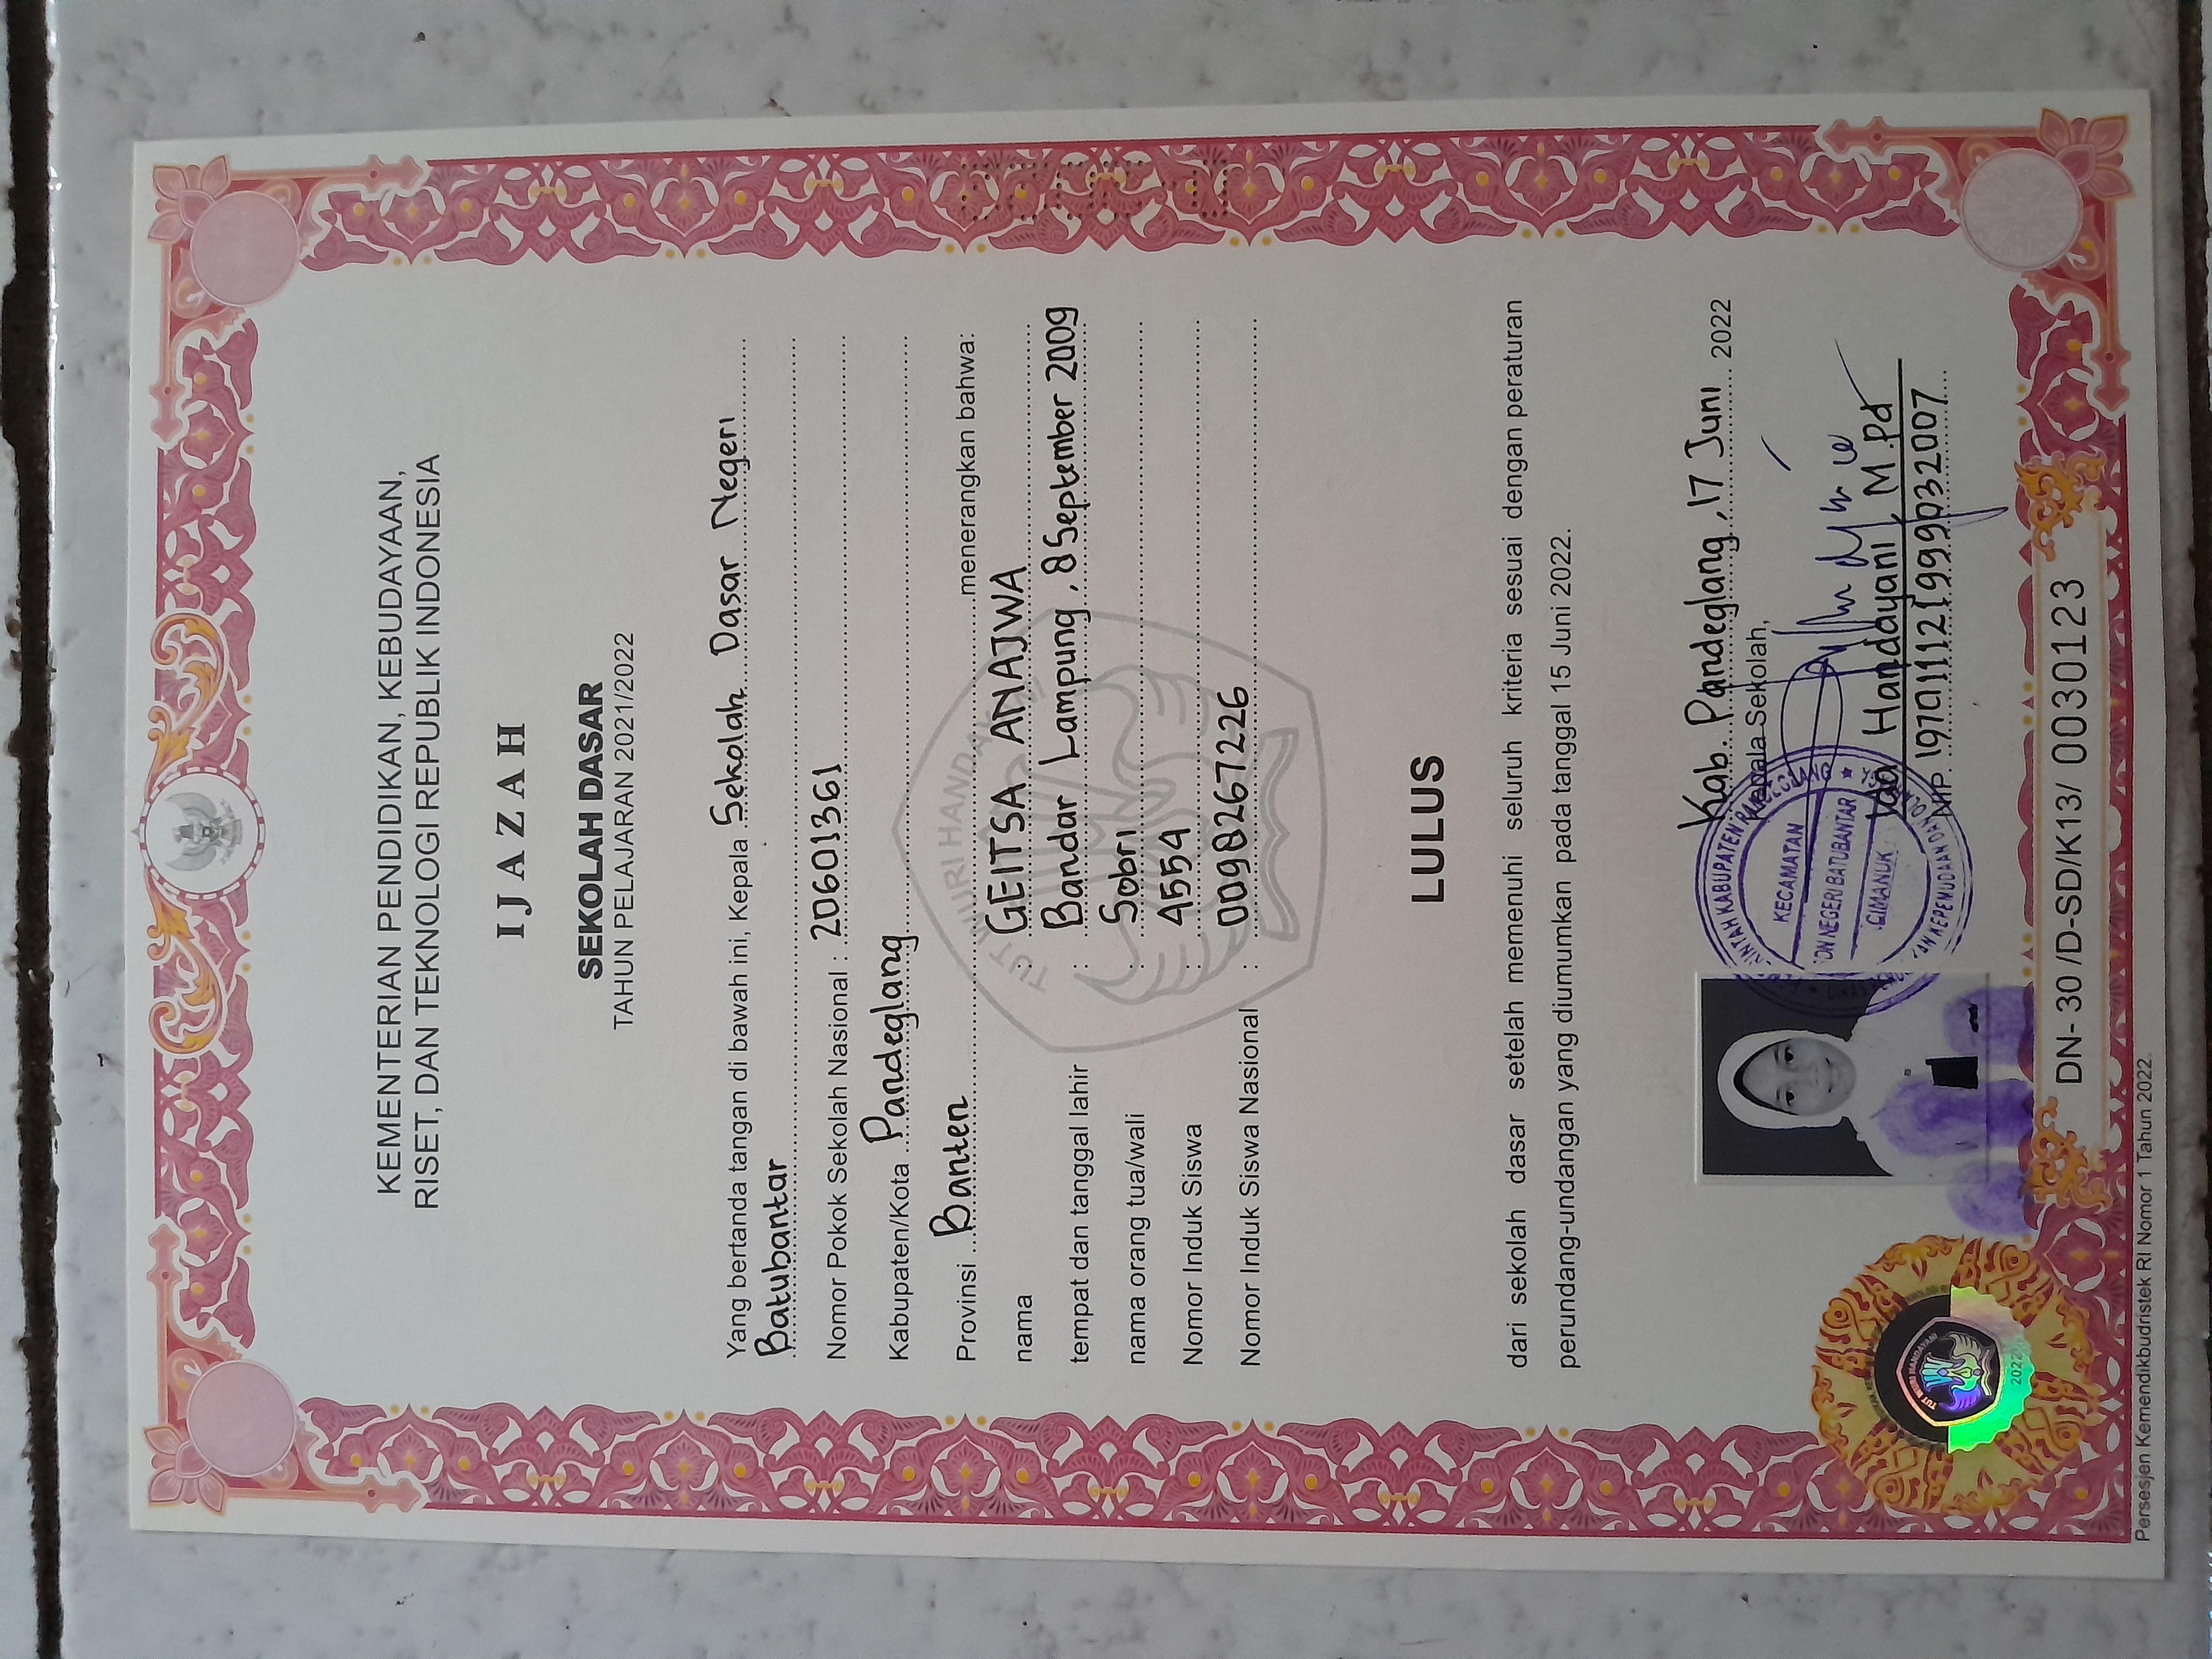 KEMENTERIAN PENDIDIKAN, KEBUDAYAAN,
RISET, DAN TEKNOLOGI REPUBLIK INDONESIA
IJAZAH
SEKOLAH DASAR
TAHUN PELAJARAN 2021/2022
Yang bertanda tangan di bawah ini, Kepala Sekolah Dasar Negeri
Batubantar
Nomor Pokok Sekolah Nasional : 20601361
Kabupaten/Kota Pandeglang
Provinsi Banten menerangkan bahwa:
nama : GEITSA ANAJWA
tempat dan tanggal lahir : Bandar Lampung, 8 September 2009
nama orang tua/wali : Sobri
Nomor Induk Siswa : 4554
Nomor Induk Siswa Nasional : 0098267226
TUT WURI HANDAYANI
LULUS
dari sekolah dasar setelah memenuhi seluruh kriteria sesuai dengan peraturan
perundang-undangan yang diumumkan pada tanggal 15 Juni 2022.
Kab. Pandeglang, 17 Juni 2022
Kepala Sekolah,
KABUPATEN PANDEGLANG
KECAMATAN
NEGERI BATUBANTAR
CIMANUK
KEPEMUDAAN DAN
Ida Handayani, M.Pd
NIP. 197011121999032007
TUT WURI HANDAYANI
2022
DN- 30 /D-SD/K13/ 0030123
Persesjen Kemendikbudristek RI Nomor 1 Tahun 2022